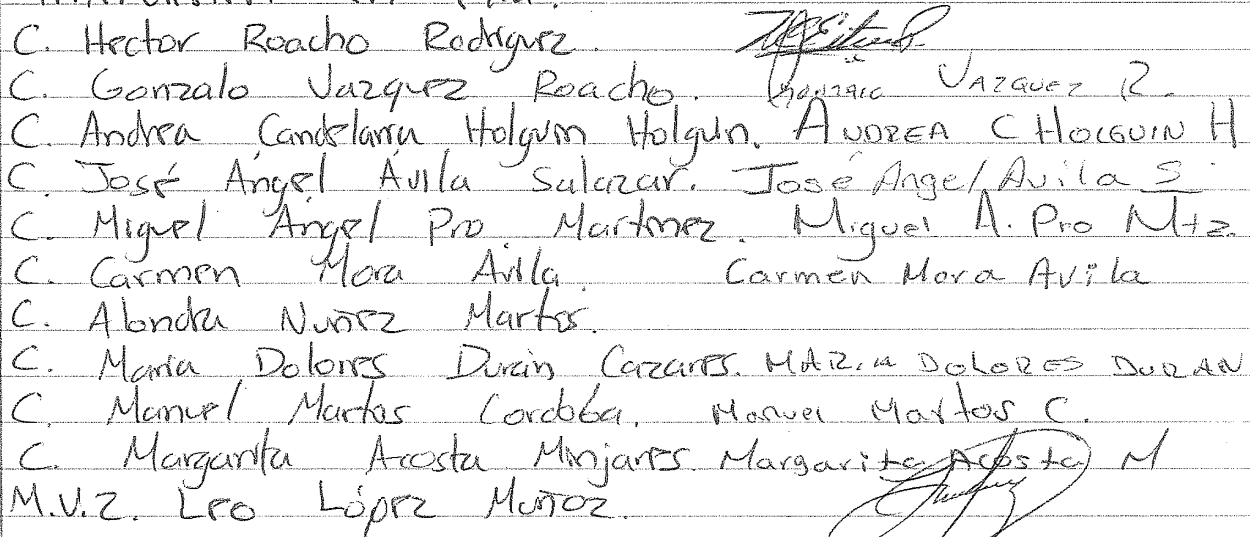 C. Hector Roacho Rodriguez.
C. Gonzalo Vazquez Roacho. Gonzalo Vazquez R.
C. Andrea Candelaria Holguin Holguin. ANDREA C HOLGUIN H
C. José Ángel Ávila Salazar. José Angel Avila S
C. Miguel Ángel Pro Martinez. Miguel A. Pro Mtz.
C. Carmen Mora Avila. Carmen Mora Avila
C. Alondra Nuñez Martos.
C. María Dolores Durán Cazares. MARIA DOLORES DURAN
C. Manuel Martos Cordoba. Manuel Martos C.
C. Margarita Acosta Minjares. Margarita Acosta M
M.V.Z. Leo López Muñoz.